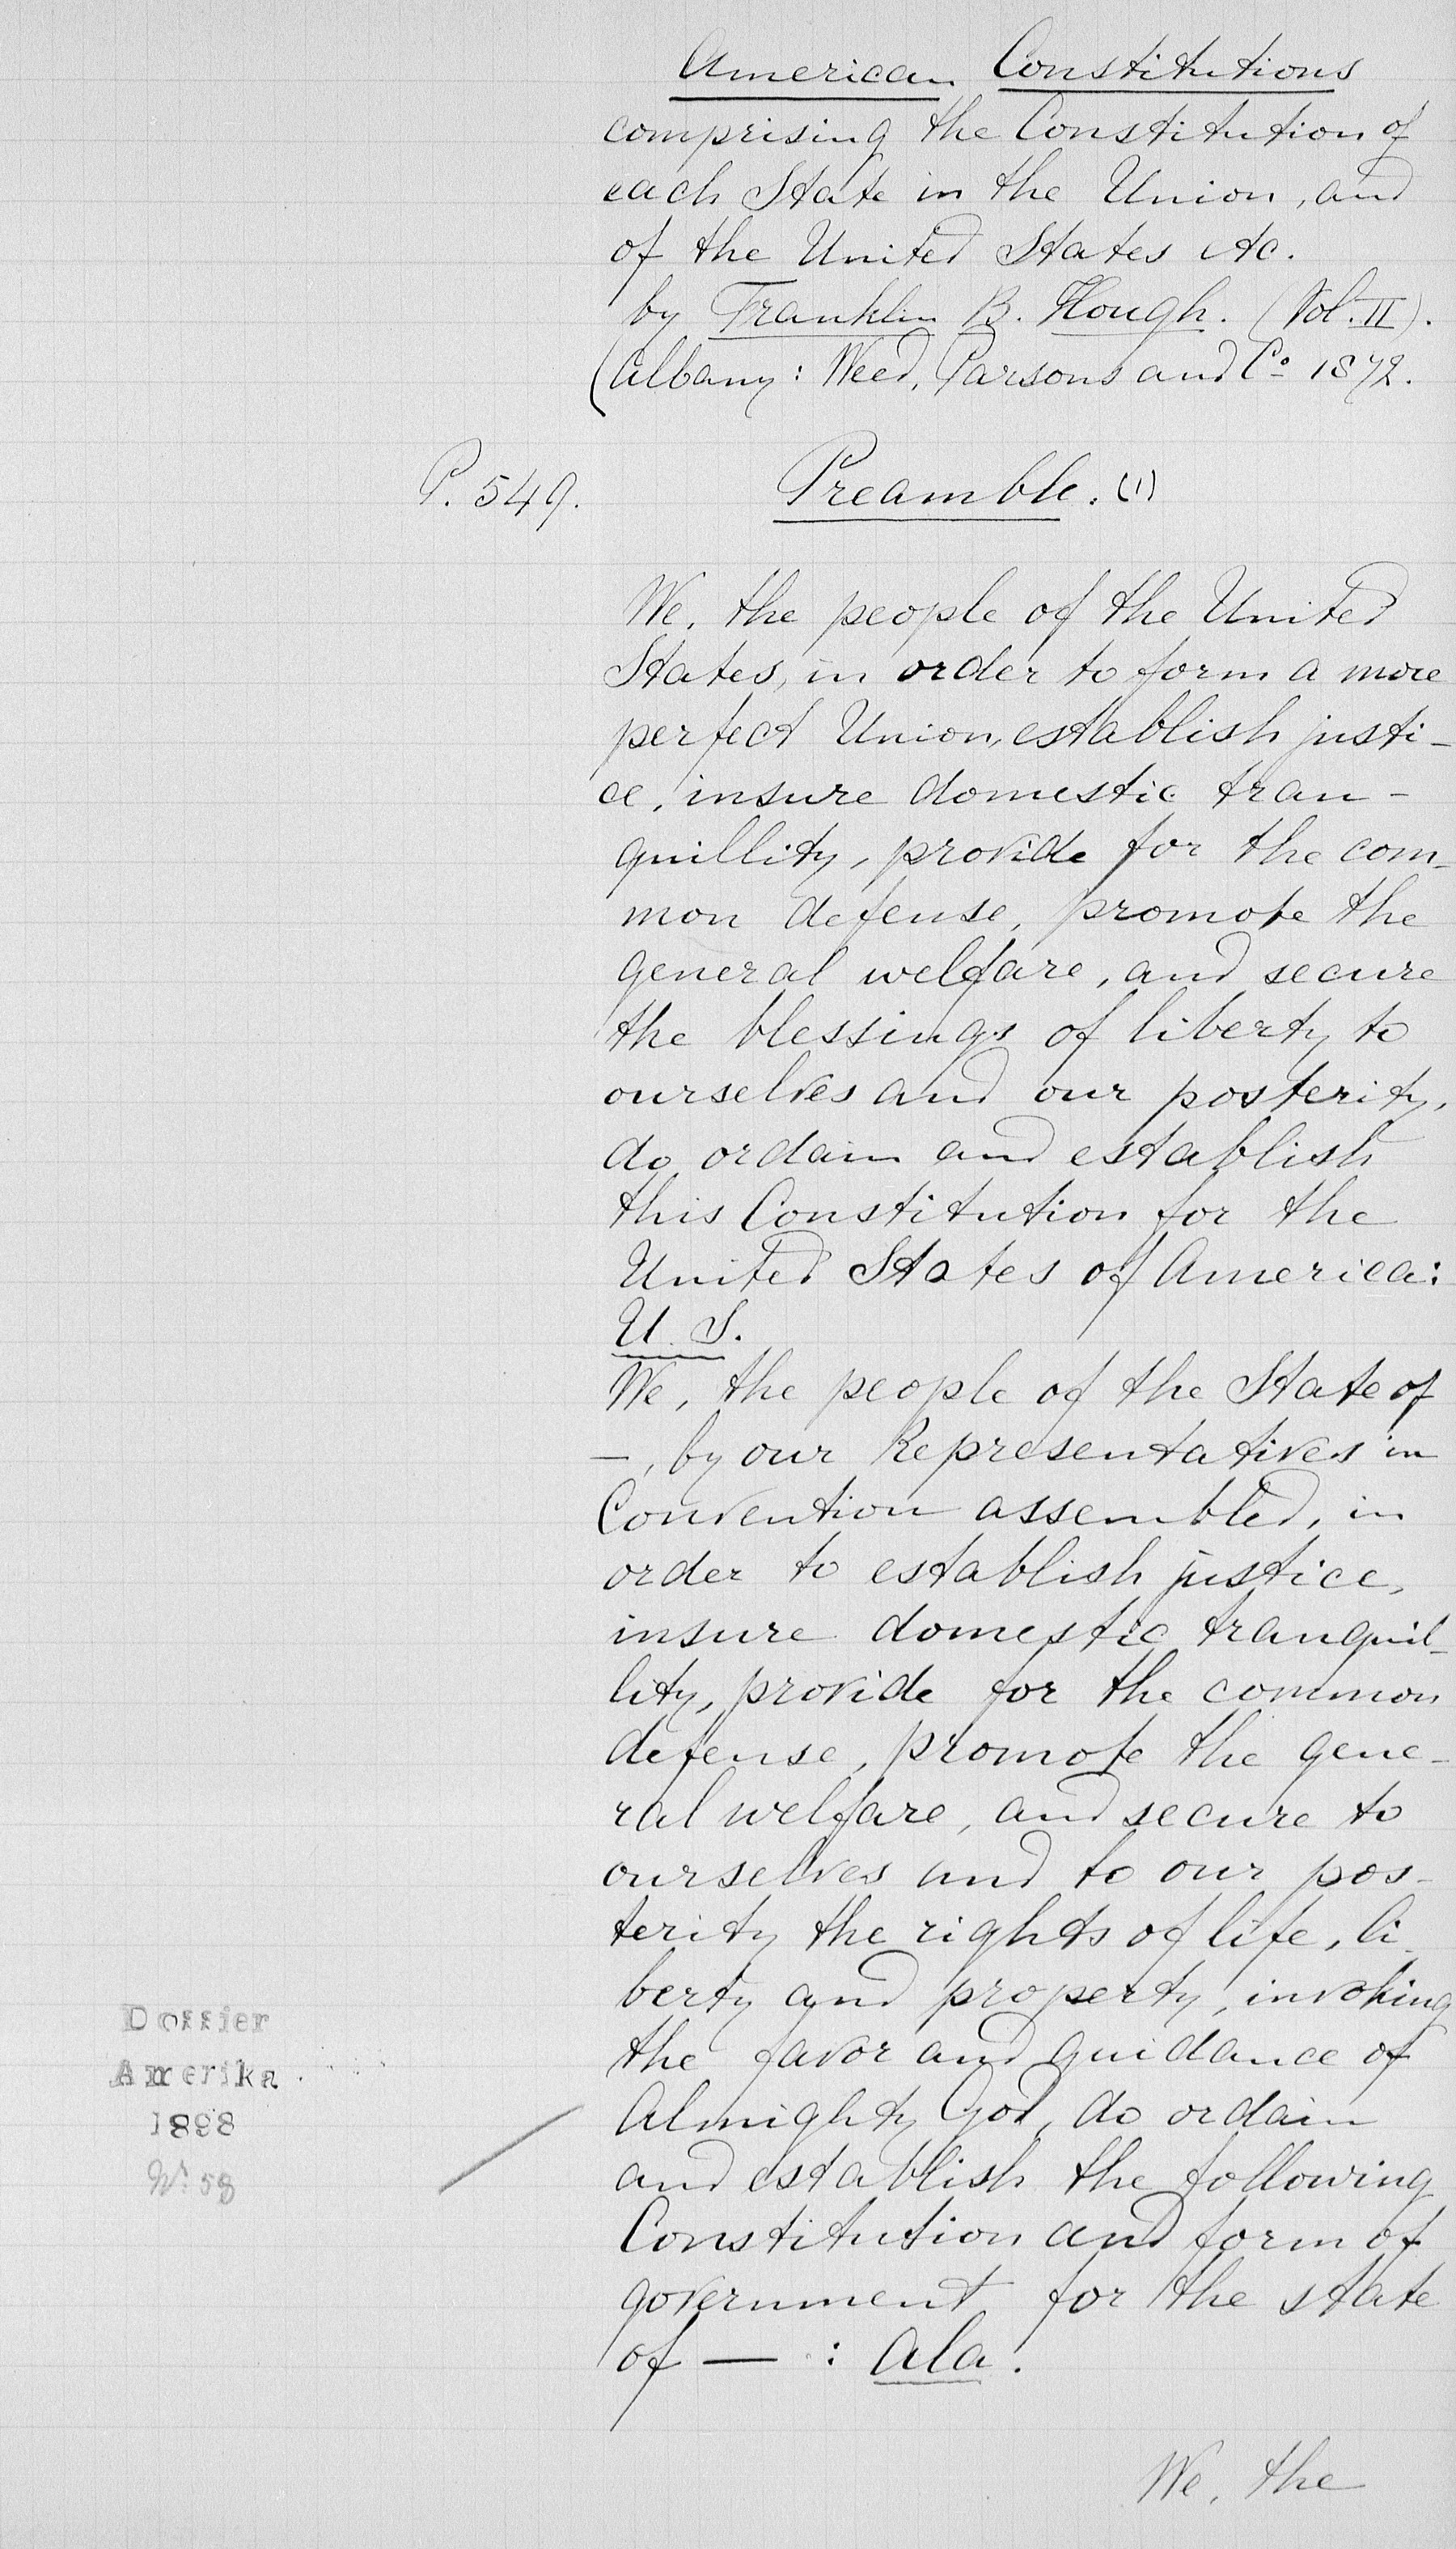 American Constitutions
comprising the Constitution of
each State in the Union, and
of the United States &c.
by Franklin B. Hough. (Vol. II).
(Albany: Weed, Parsons and Co 1872.
P. 549.
Preamble. (1)
We, the people of the United
States, in order to form a more
perfect Union, establish justi-
ce, insure domestic tran-
quillity, provide for the com-
mon defense, promote the
general welfare, and secure
the blessings of liberty to
ourselves and our posterity,
do ordain and establish
this Constitution for the
United States of America:
U. S.
We, the people of the State of
—, by our Representatives in
Convention assembled, in
order to establish justice,
insure domestic tranquil-
lity, provide for the common
defense, promote the gene-
ral welfare, and secure to
ourselves and to our pos-
terity the rights of life, li-
berty and property, invoking
the favor and guidance of
Almighty God, do ordain
and establish the following
Constitution and form of
government for the state
of — : Ala.
We, the
Dossier
Amerika.
1898
Nr. 58